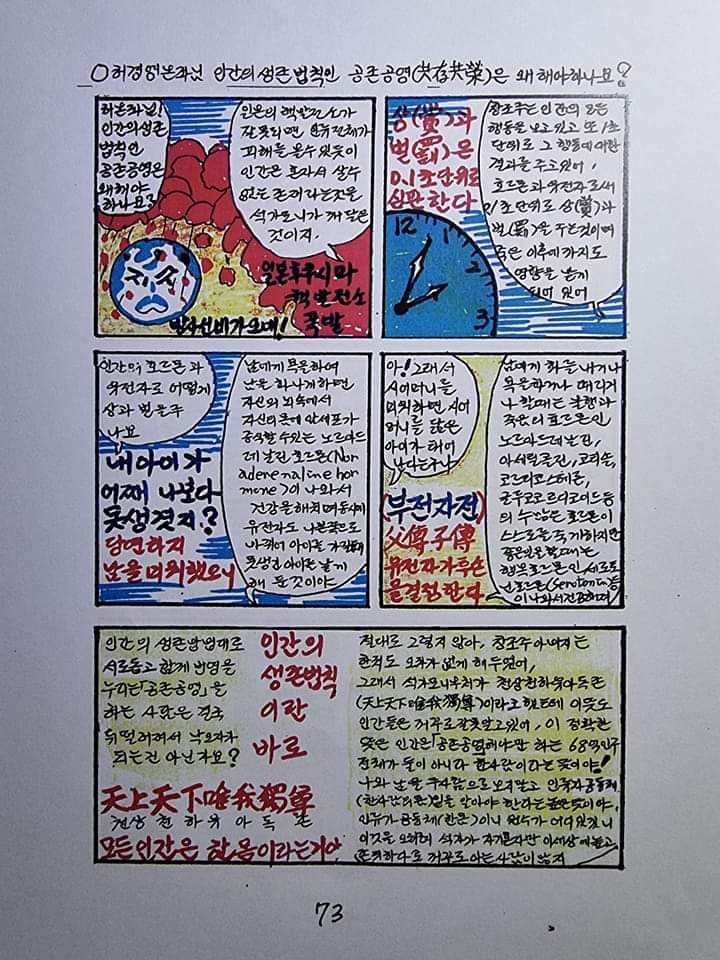 ○허경영본좌님 인간의 생존법칙인 공존공영(共存共榮)은 왜 해야하나요?
허본좌님!
인간의 생존
법칙인
공존공영은
왜 해야
하나요?
원폰의 핵발전소가
잘못되면 인류전체가
피해를 볼수 있듯이
인간은 혼자서 살수
없는 존재라는것을
석가모니가 깨달은
것이지.
지구
일본후쿠시마
핵발전소
폭발
방사선비가오네!
상(賞)과
벌(罰)은
0.1초단위로
심판한다
창조주는 인간의 모든
행동을 보고있고 또 1초
단위로 그 행동에 대한
결과를 주고있어,
호르몬과 유전자로서
0.1초단위로 상(賞)과
벌(罰)을 주는것이며
죽은 이후에 까지도
영향을 남게
되어 있어
12
1
2
3
인간의 호르몬과
유전자로 어떻게
상과 벌을 주
나요
내 아이가
어째 나보다
못생겼지?
당연하지
남을 미워했으니
남에게 욕을하여
남을 화나게 하면
자신의 뇌속에서
자신의 몸에 암세포가
증식할수있는 노르아드
레날린호르몬(Nor
adrenaline hor
mone)이 나와서
건강을 해치며 동시에
유전자도 나쁜것으로
바뀌어 아이를 가질때
못생긴 아이를 낳게
해 둔것이야
아! 그래서
시어머니를
미워하면 시어
머니를 닮은
아이가 태어
난다는구나
(부전자전)
父傳子傳
유전자가 두손
물결전한다
남에게 화를 내거나
욕을하거나 때리거
나 할때는 불행과
죽음의 호르몬인
노르아드레날린,
아세틸콜린, 코티솔,
코르티코스테론,
글루코코르티코이드등
의 수많은 호르몬이
스스로를 죽게하지만
좋은일을 할때에는
행복호르몬인 세로토
닌호르몬(Serotonin)등
이 나와서 건강해져
인간의 생존방법대로
서로돕고 함께 번영을
누리는「공존공영」을
하는 사람은 결국
뒤떨어져서 낙오자가
되는건 아닌가요?
인간의
생존법칙
이란
바로
天上天下唯我獨尊
천상천하유아독존
모든 인간은 한몸이라는거야
절대로 그렇지 않아, 창조주 아버지는
한치도 오차가 없게 해두었어,
그래서 석가모니 부처가 천상천하유아독존
(天上天下唯我獨尊)이라고 했는데 이 뜻도
인간들은 거꾸로 잘못알고있어, 이 정확한
뜻은 인간은「공존공영」해야만 하는 68억인구
전체가 둘이 아니라 한사람이라는 뜻이야!
나와 남을 두사람으로 보지말고 인류가 공동체
(한사람의 몸)임을 알아야 한다는 높은뜻이야,
인류가 공동체(한몸)이니 원수가 어디있겠니
이것을 오히려 석가가 자기혼자만 이세상에 높고
존귀하다로 거꾸로 아는 사람이 많지
73